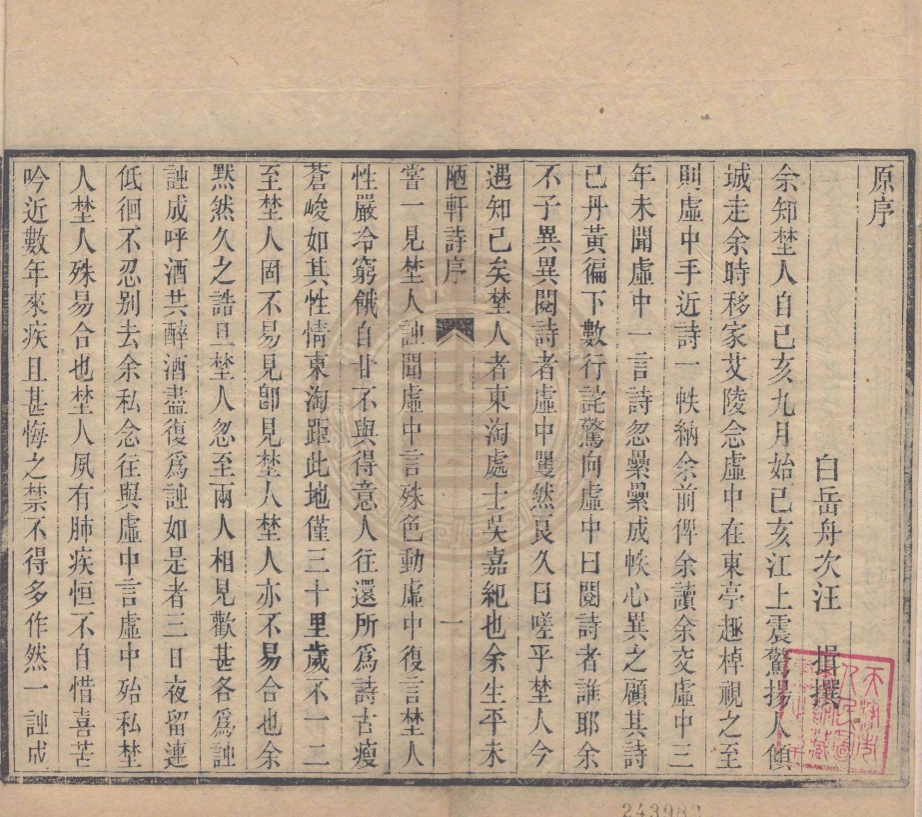 原序
白岳舟次汪 揖撰
余知埜人自己亥九月始己亥江上震驚揚人傾
城走余時移家艾陵念虛中在東亭趣棹視之至
則虛中手近詩一帙納余前俾余讀余交虛中三
年未聞虛中一言詩忽纍纍成帙心異之顧其詩
已丹黃徧下數行詫驚向虛中曰閱詩者誰耶余
不子異異閱詩者虛中矍然良久曰嗟乎埜人今
遇知己矣埜人者東淘處士吳嘉紀也余生平未
陋軒詩序 一
嘗一見埜人詩聞虛中言殊色動虛中復言埜人
性嚴冷窮餓自甘不與得意人往還所爲詩古瘦
蒼峻如其性情東淘距此地僅三十里歲不一二
至埜人固不易見卽見埜人埜人亦不易合也余
默然久之誥旦埜人忽至兩人相見歡甚各爲詩
詩成呼酒共醉酒盡復爲詩如是者三日夜留連
低徊不忍別去余私念往與虛中言虛中殆私埜
人埜人殊易合也埜人夙有肺疾恒不自惜喜苦
吟近數年來疾且甚悔之禁不得多作然一詩成
243982